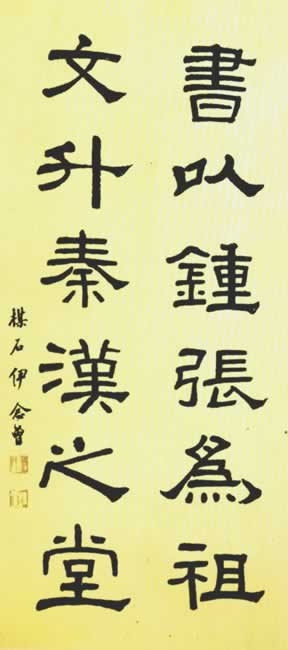 書以鍾張爲祖
文升秦漢之堂
楳石伊念曾